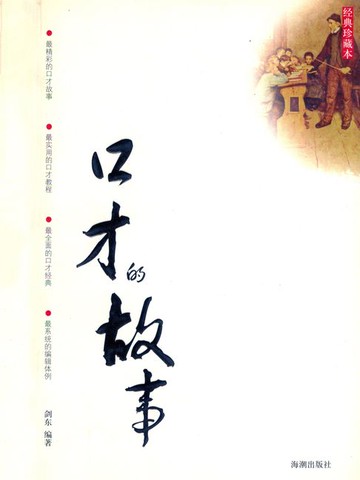 经典珍藏本
口才的故事
最精彩的口才故事
最实用的口才教程
最全面的口才经典
最系统的编辑体例
剑东 编著
海潮出版社